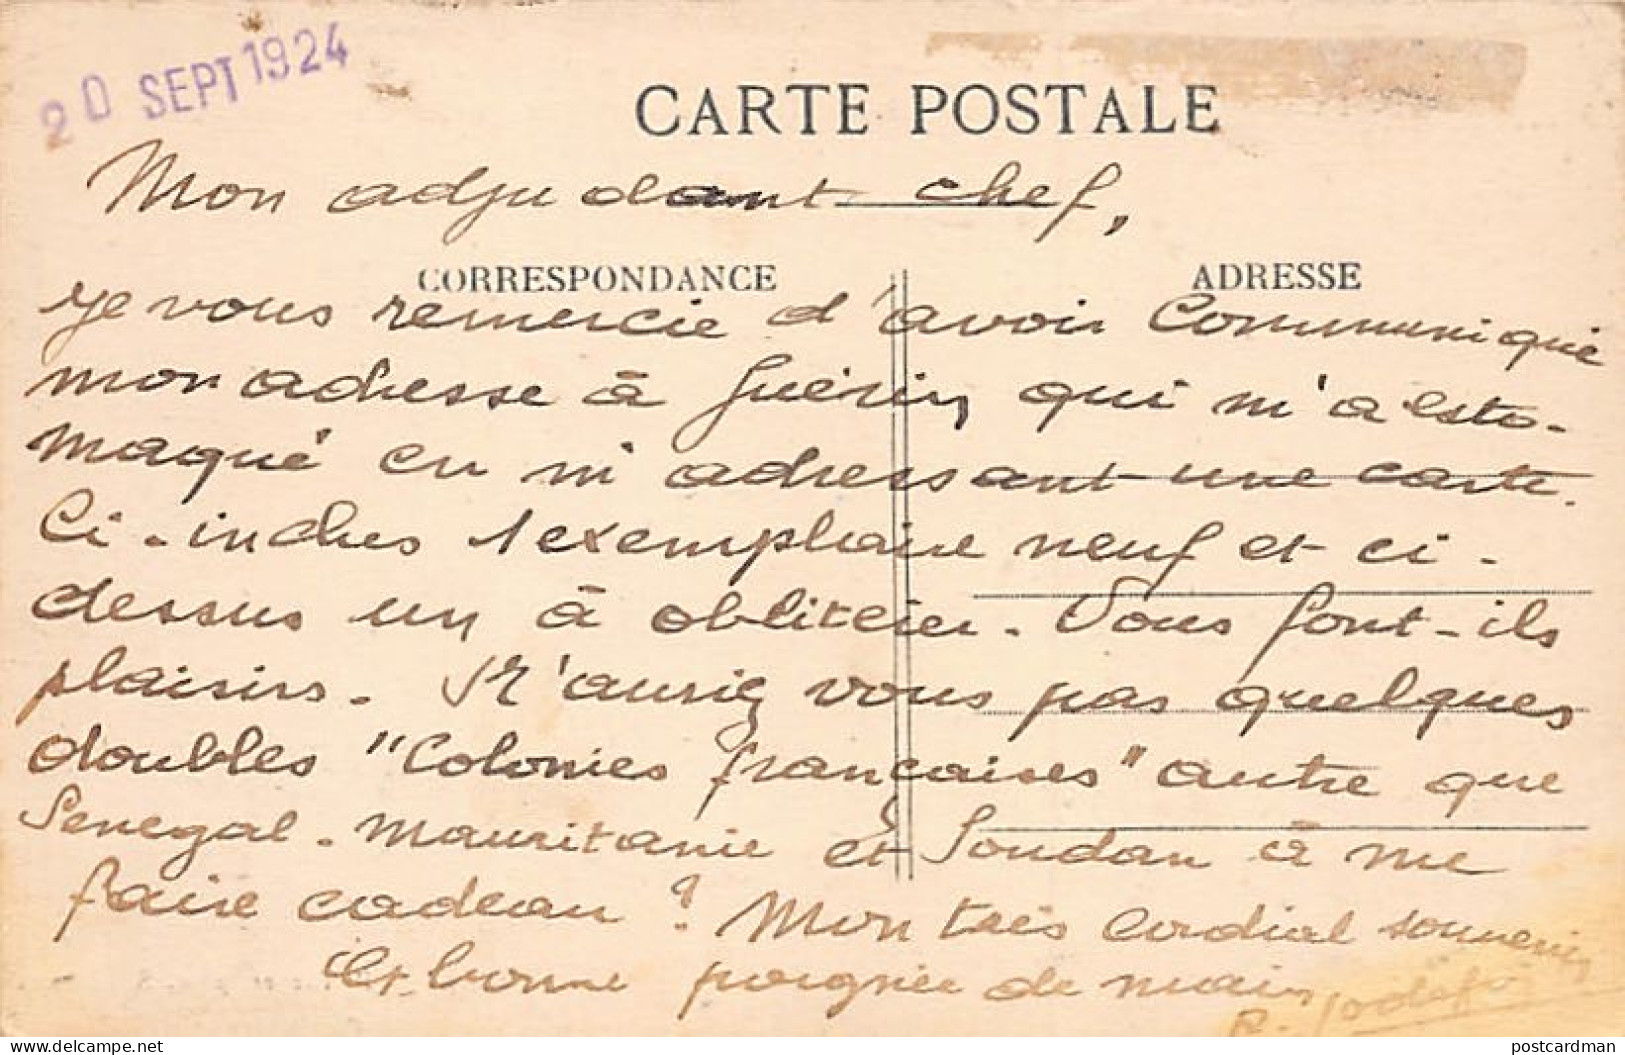 20 SEPT 1924
CARTE POSTALE
Mon adjudant-chef,
CORRESPONDANCE
ADRESSE
Je vous remercie d'avoir communiqué
mon adresse à Guérin qui m'a esto-
maqué en m'adressant une carte.
Ci-inclus 1 exemplaire neuf et ci-
dessus un à oblitérer. Vous font-ils
plaisirs. N'auriez vous pas quelques
doubles "Colonies françaises" autre que
Senegal - Mauritanie et Soudan à me
faire cadeau? Mon très cordial souvenir
et bonne poignée de main
R.
postcardman